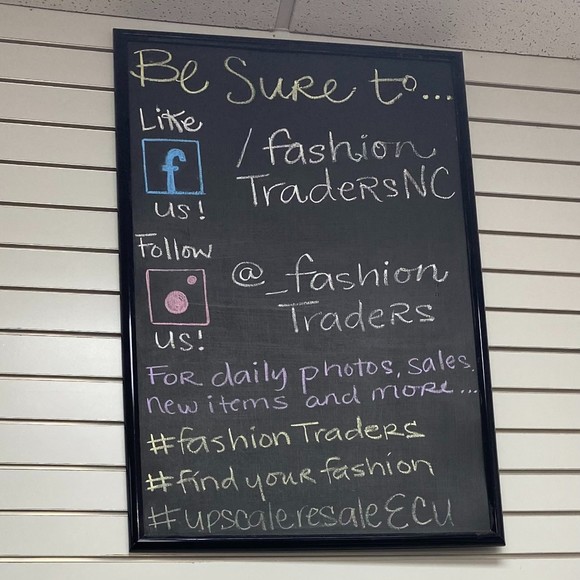 Be Sure to...
Like
f
us!
/fashion
TradeRsNC
Follow
us!
@_fashion
TradeRs
FoR daily photos, sales,
new items and moRe...
#fashionTradeRs
#findyourfashion
#upscaleresaleECU